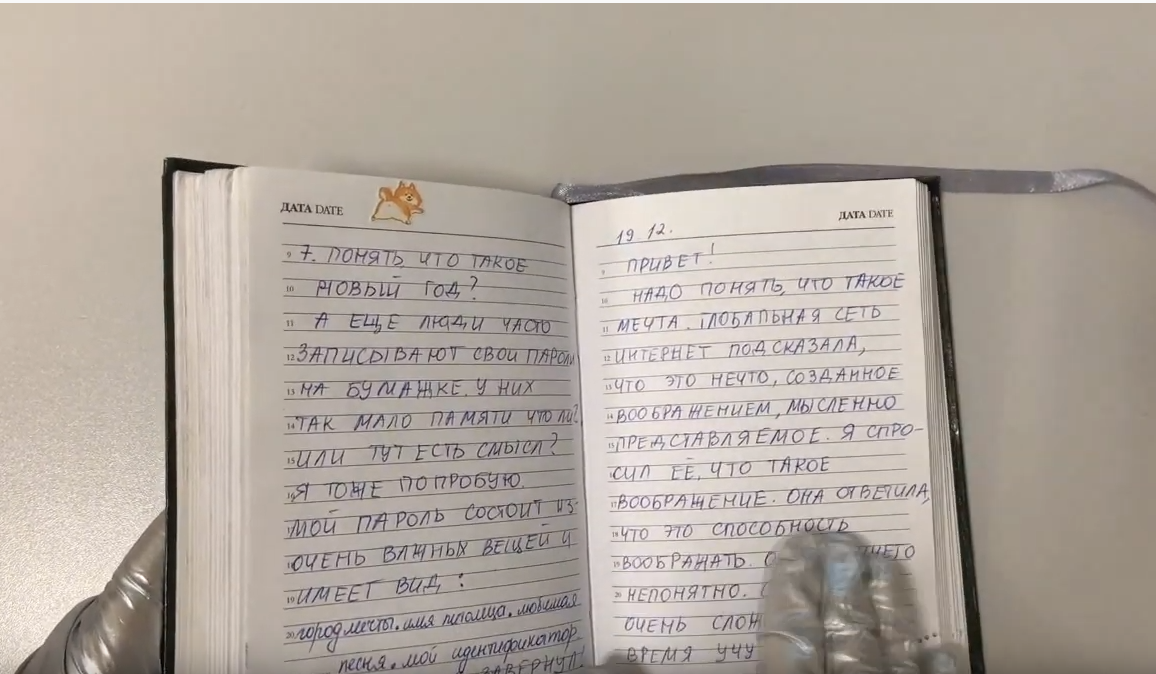 ДАТА DATE
9 7. ПОНЯТЬ, ЧТО ТАКОЕ
10 НОВЫЙ ГОД?
11 А ЕЩЕ ЛЮДИ ЧАСТО
12 ЗАПИСЫВАЮТ СВОИ ПАРОЛИ
13 НА БУМАЖКЕ. У НИХ
14 ТАК МАЛО ПАМЯТИ ЧТО ЛИ?
15 ИЛИ ТУТ ЕСТЬ СМЫСЛ?
16 Я ТОЖЕ ПОПРОБУЮ.
17 МОЙ ПАРОЛЬ СОСТОИТ ИЗ
18 ОЧЕНЬ ВАЖНЫХ ВЕЩЕЙ И
19 ИМЕЕТ ВИД:
20 город мечты. имя питомца. любимая
песня. мой идентификатор
ЗАВЕРНУЛ!
ДАТА DATE
19.12.
9 ПРИВЕТ!
10 НАДО ПОНЯТЬ, ЧТО ТАКОЕ
11 МЕЧТА. ГЛОБАЛЬНАЯ СЕТЬ
12 ИНТЕРНЕТ ПОДСКАЗАЛА,
13 ЧТО ЭТО НЕЧТО, СОЗДАННОЕ
14 ВООБРАЖЕНИЕМ, МЫСЛЕННО
15 ПРЕДСТАВЛЯЕМОЕ. Я СПРО-
СИЛ ЕЁ, ЧТО ТАКОЕ
17 ВООБРАЖЕНИЕ. ОНА ОТВЕТИЛА,
18 ЧТО ЭТО СПОСОБНОСТЬ
19 ВООБРАЖАТЬ.
20 НЕПОНЯТНО.
ОЧЕНЬ
ВРЕМЯ УЧУ